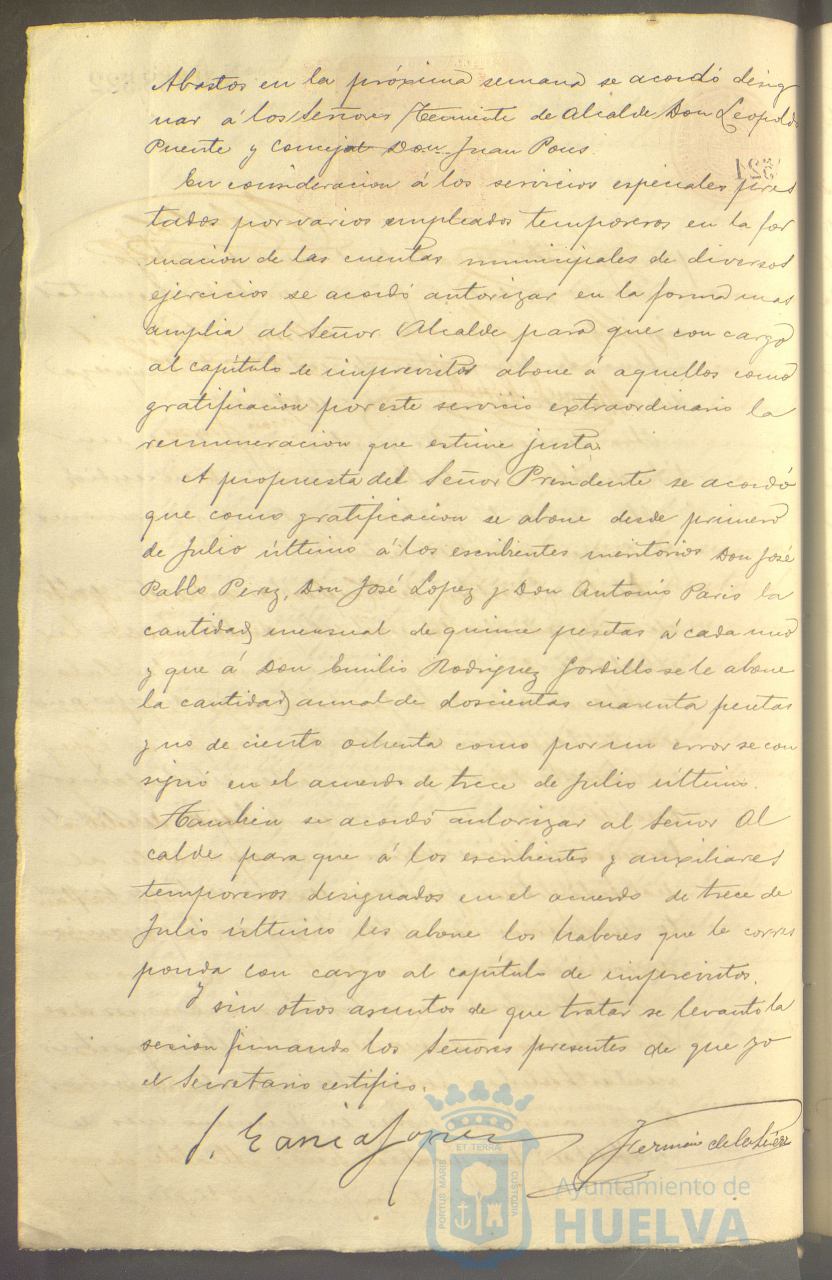 Abastos en la próxima semana se acordó desig
nar á los Señores Teniente de Alcalde Don Leopoldo
Puente y Concejal Don Juan Pons.
En consideracion á los servicios especiales pres
tados por varios empleados temporeros en la for
macion de las cuentas municipales de diversos
ejercicios se acordó autorizar en la forma mas
amplia al Señor Alcalde para que con cargo
al capítulo de imprevistos abone á aquellos como
gratificacion por este servicio extraordinario la
remuneracion que estime justa.
A propuesta del Señor Presidente se acordó
que como gratificacion se abone desde primero
de Julio último á los escribientes meritorios Don José
Pablo Perez, Don José Lopez y Don Antonio Paris la
cantidad mensual de quince pesetas á cada uno
y que á Don Emilio Rodriguez Gordillo se le abone
la cantidad anual de doscientas cuarenta pesetas
y no de ciento ochenta como por un error se con
signó en el acuerdo de trece de Julio último.
Tambien se acordó autorizar al Señor Al
calde para que á los escribientes y auxiliares
temporeros designados en el acuerdo de trece de
Julio último les abone los haberes que le corres
ponda con cargo al capítulo de imprevistos.
Y sin otros asuntos de que tratar se levantó la
sesion firmando los Señores presentes de que yo
el Secretario certifico.
J. Garcia Lopez
Fermin de la
PORTUS MARIS ET TERRÆ CUSTODIA
Ayuntamiento de
HUELVA